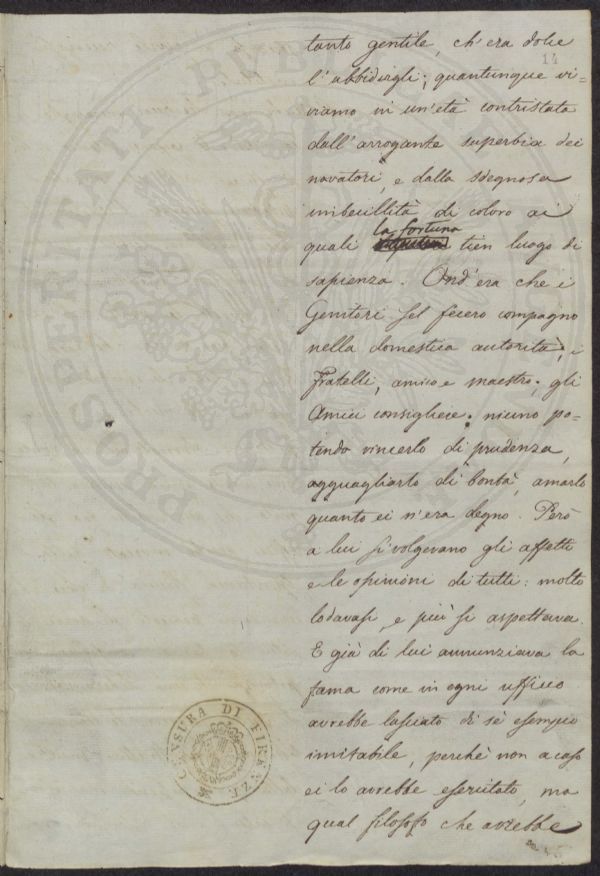 tanto gentile, ch'era dolce
14
l'abbidirgli; quantunque vi=
viamo in un'età contristata
dall'arrogante superbia dei
novatori, e dalla sdegnosa
imbecillità di coloro ai
la fortuna
quali tien luogo di
sapienza. Ond'era che i
Genitori sel fecero compagno
nella domestica autorità; i
Fratelli, amico e maestro; gli
Amici consigliere: niuno po=
tendo vincerlo di prudenza,
agguagliarlo di bontà, amarlo
quanto ei n'era degno. Però
a lui si volgevano gli affetti
e le opinioni di tutti: molto
lodavasi, e più si aspettava.
E già di lui annunziava la
fama come in ogni uffizio
avrebbe lasciato di sè esempio
imitabile, perchè non a caso
ei lo avrebbe esercitato, ma
qual filosofo che avrebbe
CENSURA DI FIRENZE
PROSPERITATI PUBLICAE